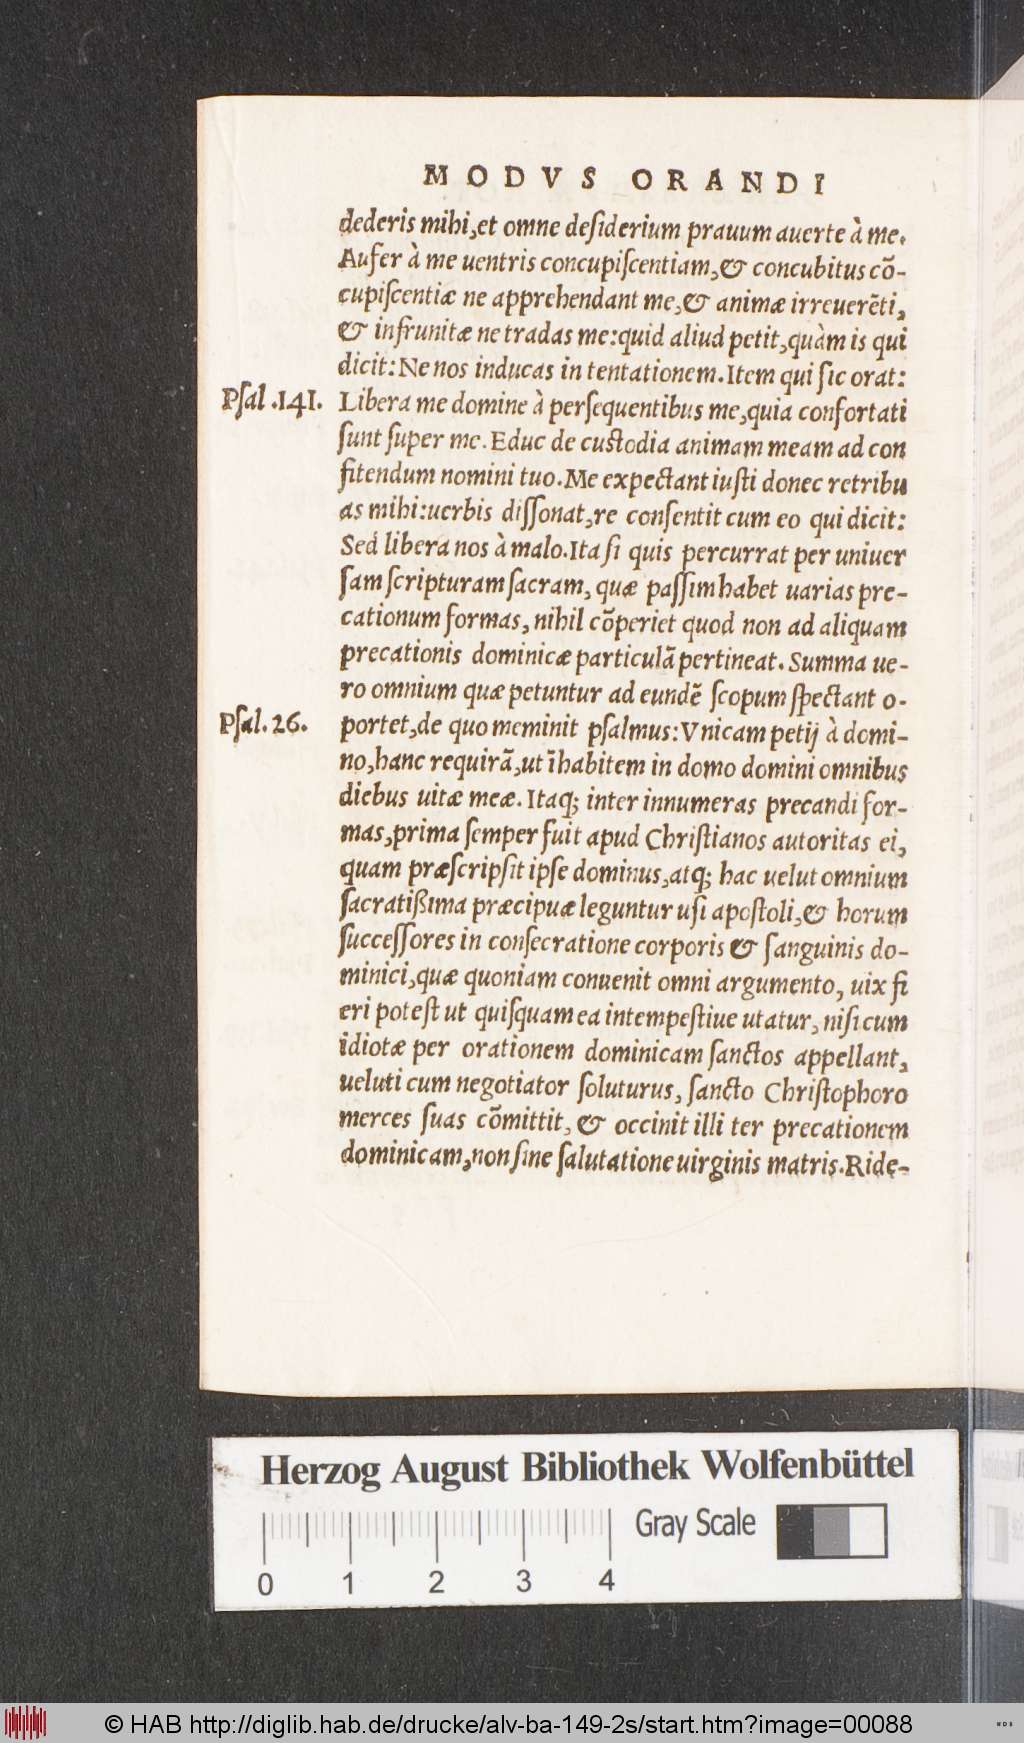 MODVS ORANDI
dederis mihi, et omne desiderium prauum auerte à me.
Aufer à me uentris concupiſcentiam, & concubitus cō-
cupiſcentiæ ne apprehendant me, & animæ irreuerēti,
& infrunitæ ne tradas me: quid aliud petit, quàm is qui
dicit: Ne nos inducas in tentationem. Item qui ſic orat:
Pſal. 141. Libera me domine à perſequentibus me, quia confortati
ſunt ſuper me. Educ de cuſtodia animam meam ad con
fitendum nomini tuo. Me expectant iuſti donec retribu
as mihi: uerbis diſſonat, re conſentit cum eo qui dicit:
Sed libera nos à malo. Ita ſi quis percurrat per uniuer
ſam ſcripturam ſacram, quæ paſſim habet uarias pre-
cationum formas, nihil cōperiet quod non ad aliquam
precationis dominicæ particulā pertineat. Summa ue-
ro omnium quæ petuntur ad eundē ſcopum ſpectant o-
Pſal. 26. portet, de quo meminit pſalmus: Vnicam petij à domi-
no, hanc requirā, ut īhabitem in domo domini omnibus
diebus uitæ meæ. Itaq; inter innumeras precandi for-
mas, prima ſemper fuit apud Chriſtianos autoritas ei,
quam præſcripſit ipſe dominus, atq; hac uelut omnium
ſacratißima præcipuæ leguntur uſi apoſtoli, & horum
ſucceſſores in conſecratione corporis & ſanguinis do-
minici, quæ quoniam conuenit omni argumento, uix fi
eri poteſt ut quiſquam ea intempeſtiue utatur, niſi cum
idiotæ per orationem dominicam ſanctos appellant,
ueluti cum negotiator ſoluturus, ſancto Chriſtophoro
merces ſuas cōmittit, & occinit illi ter precationem
dominicam, non ſine ſalutatione uirginis matris. Ride-
Herzog August Bibliothek Wolfenbüttel
Gray Scale
0 1 2 3 4
© HAB http://diglib.hab.de/drucke/alv-ba-149-2s/start.htm?image=00088